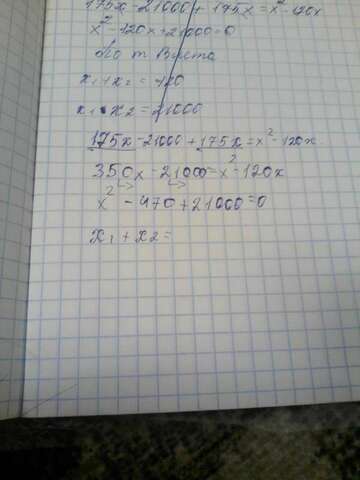 175x - 21000 + 175x = x² - 120x
x² - 120x + 21000 = 0
по т Виета
x₁ + x₂ = 120
x₁ · x₂ = 21000
175x - 21000 + 175x = x² - 120x
350x - 21000 = x² - 120x
x² - 470 + 21000 = 0
x₁ + x₂ =